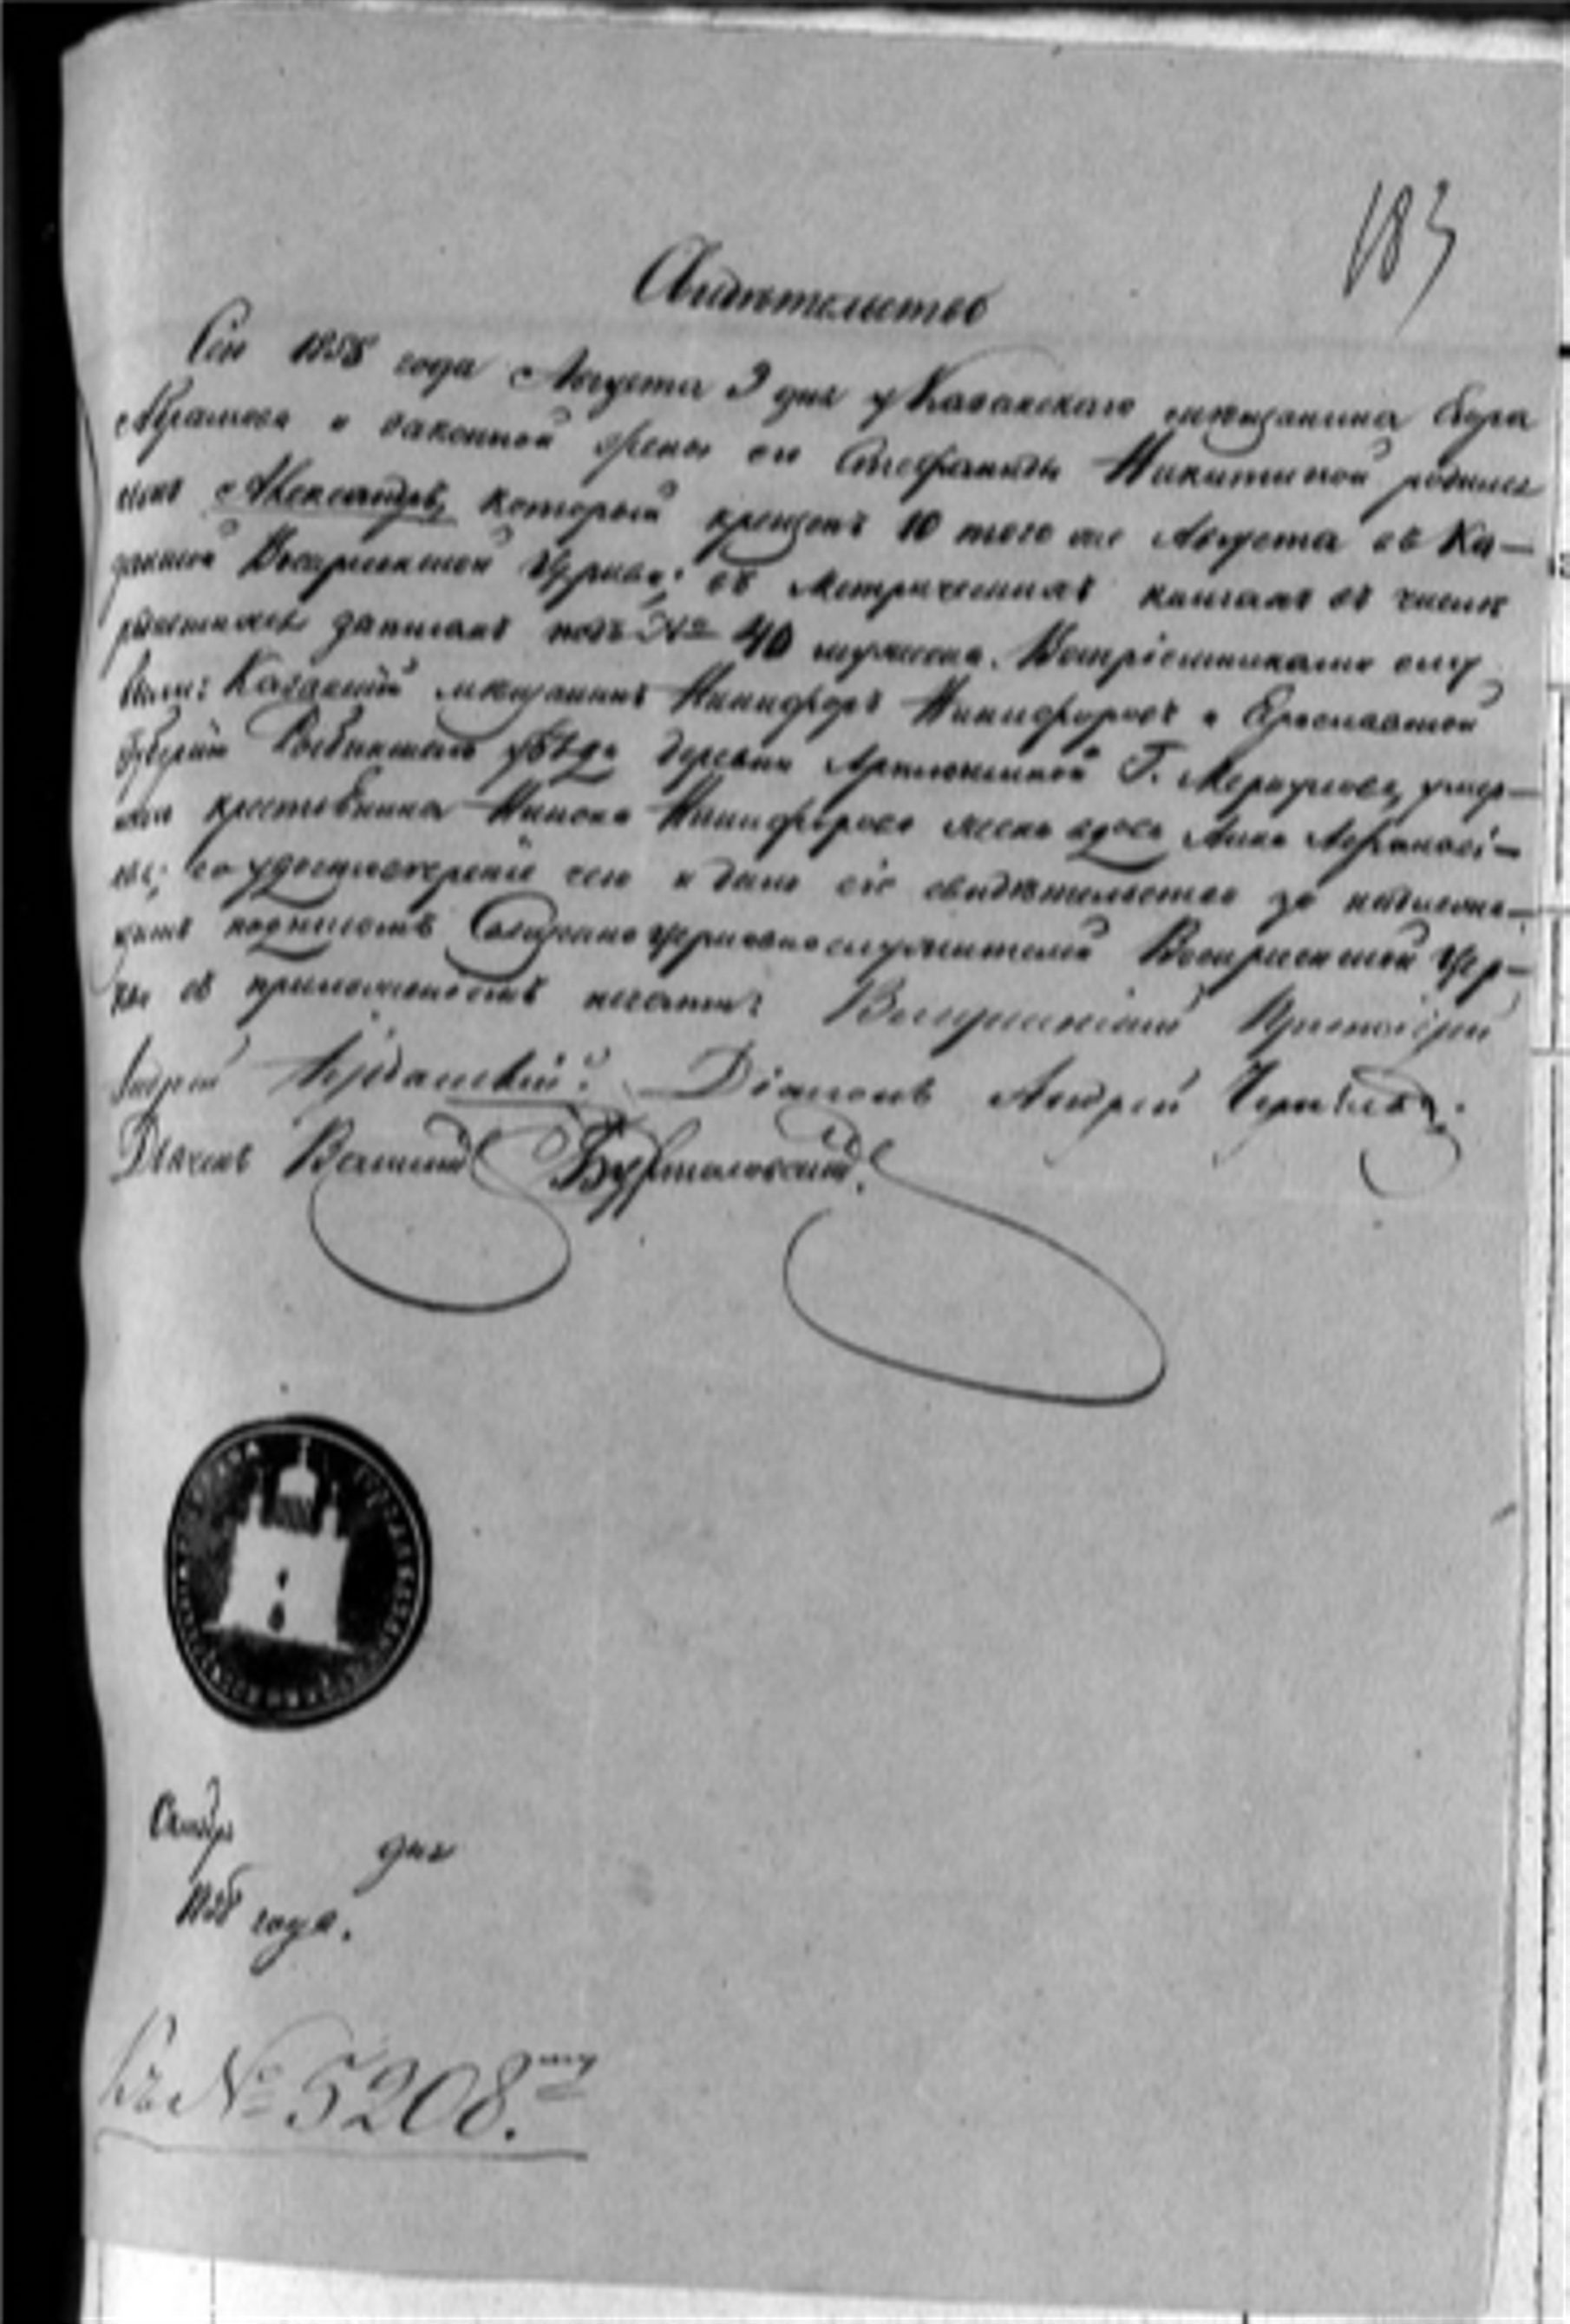 183
Свидѣтельство
Сего 1858 года Августа 9 дня у Казанскаго мѣщанина Егора
Абрамова и законной жены его Стефаниды Никитиной родился
сынъ Александръ, который крещенъ 10 того же Августа въ Ка-
занской Воскресенской Церкви; въ Метрическихъ книгахъ въ числѣ
родившихся записанъ подъ № 40 мужеска. Воспріемниками ему
были: Казанскій мѣщанинъ Никифоръ Никифоровъ и Ярославской
Губерніи Рыбинскаго уѣзда деревни Г. Меркулова, умер-
шаго крестьянина Никифорова жена вдова Анна Аѳанасі-
ева; въ удостовѣреніе чего и дано сіе свидѣтельство за надлежа-
щимъ подписомъ Священноцерковнослужителей Воскресенской Цер-
кви съ приложеніемъ печати: Воскресенскій Протоіерей
Андрей Діаконъ Андрей
Дьячекъ Василій
дня
1858 года.
Къ № 5208.му